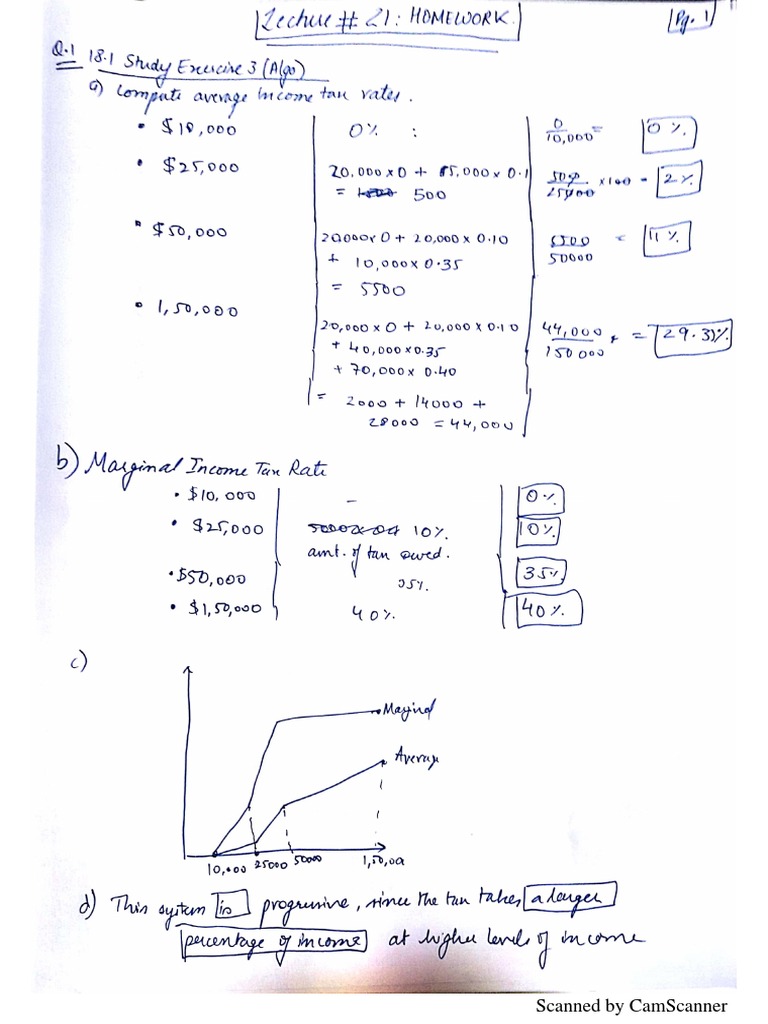 Lecture # 21: HOMEWORK.
Pg. 1
Q.1 18.1 Study Exercise 3 (Algo)
a) Compute average income tax rates.
• $10,000 0% : 0/10,000 = 0%
• $25,000 20,000x0 + 5,000x0.1 = 500 500/25000 x100 = 2%
• $50,000 20000x0 + 20,000x0.10
+ 10,000x0.35
= 5500 5500/50000 = 11%
• 1,50,000 20,000x0 + 20,000x0.10
+ 40,000x0.35
+ 70,000x0.40
= 2000 + 14000 +
28000 = 44,000 44,000/150000 = 29.33%
b) Marginal Income Tax Rate
• $10,000 - 0%
• $25,000 10%. 10%
amt. of tax owed.
• $50,000 35%. 35%
• $1,50,000 40%. 40%.
c)
Marginal
Average
10,000 25000 50000 1,50,00
d) This system is progressive, since the tax takes a larger
percentage of income at higher levels of income
Scanned by CamScanner